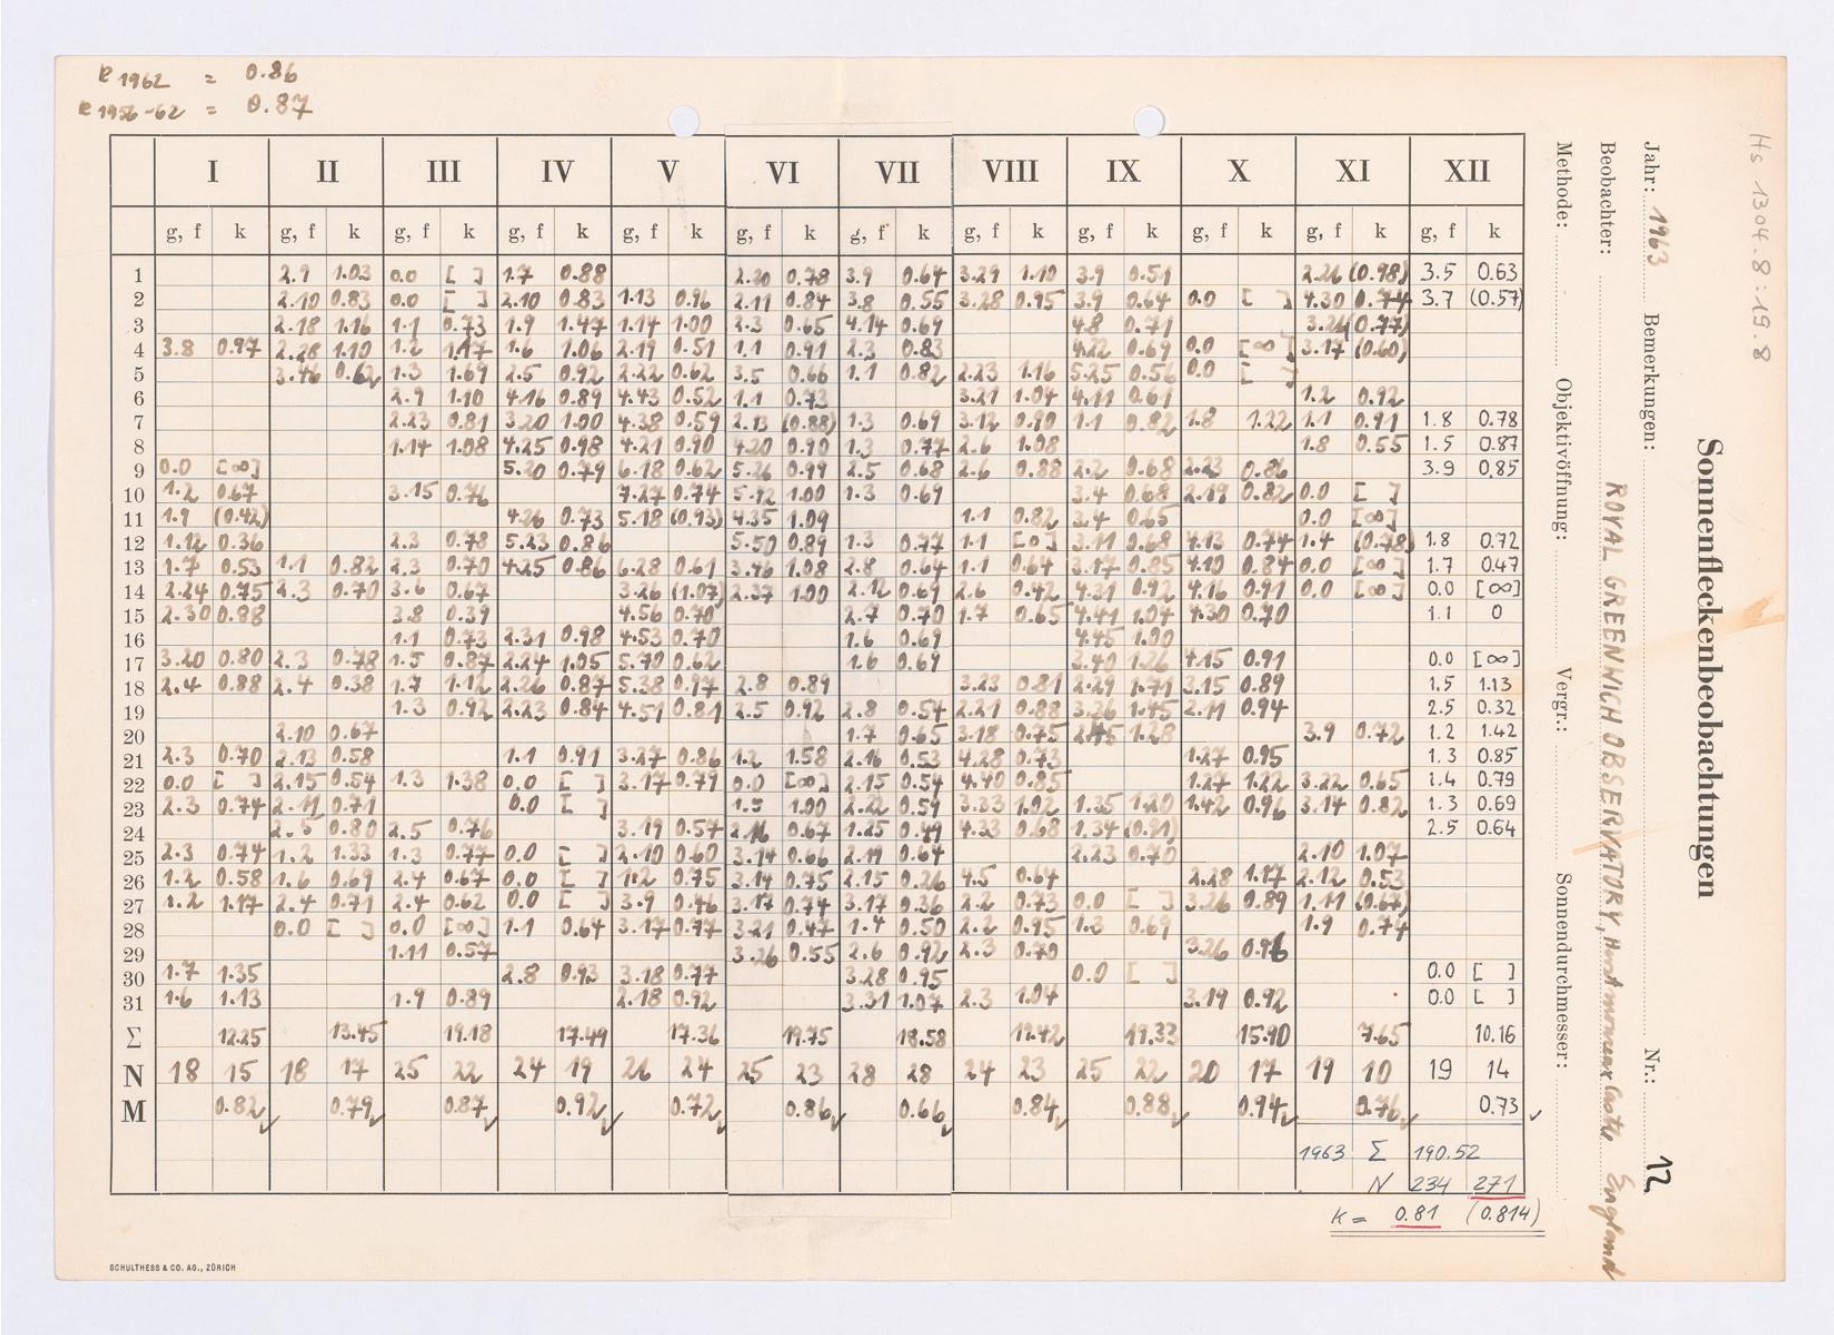 k 1962 = 0.86
k 1956-62 = 0.87
Hs 1304.8:19.8
Sonnenfleckenbeobachtungen
Jahr: 1963 Bemerkungen: Nr.: 12
Beobachter: ROYAL GREENWICH OBSERVATORY, Herstmonceux Castle England
Methode: Objektivöffnung: Vergr.: Sonnendurchmesser:
I II III IV V VI VII VIII IX X XI XII
g, f k g, f k g, f k g, f k g, f k g, f k g, f k g, f k g, f k g, f k g, f k g, f k
1 2.9 1.03 0.0 [ ] 1.7 0.88 2.20 0.78 3.9 0.64 3.29 1.10 3.9 0.51 2.26 (0.98) 3.5 0.63
2 2.10 0.83 0.0 [ ] 2.10 0.83 1.13 0.96 2.11 0.84 3.8 0.55 3.28 0.95 3.9 0.64 0.0 [ ] 4.30 0.74 3.7 (0.57)
3 2.18 1.16 1.1 0.73 1.9 1.47 1.14 1.00 2.3 0.65 4.14 0.69 4.8 0.71 (0.77)
4 3.8 0.97 2.28 1.10 1.2 1.17 1.6 1.06 2.19 0.51 1.1 0.91 2.3 0.83 4.22 0.69 0.0 [∞] 3.17 (0.60)
5 3.46 0.62 1.3 1.69 2.5 0.92 2.22 0.62 3.5 0.66 1.1 0.82 2.23 1.16 5.25 0.56 0.0 [ ]
6 2.9 1.10 4.16 0.89 4.43 0.52 1.1 0.73 3.21 1.04 4.11 0.61 1.2 0.92
7 2.23 0.81 3.20 1.00 4.38 0.59 2.13 (0.88) 1.3 0.69 3.12 0.90 1.1 0.82 1.8 1.22 1.1 0.91 1.8 0.78
8 1.14 1.08 4.25 0.98 4.21 0.90 4.20 0.90 1.3 0.77 2.6 1.08 1.8 0.55 1.5 0.87
9 0.0 [∞] 5.20 0.79 6.18 0.62 5.26 0.99 2.5 0.68 2.6 0.88 2.2 0.68 2.23 0.86 3.9 0.85
10 1.2 0.67 3.15 0.76 7.27 0.74 1.00 1.3 0.69 3.4 0.68 2.19 0.82 0.0 [ ]
11 1.9 (0.42) 4.26 0.73 5.18 (0.93) 4.35 1.09 1.1 0.82 3.4 0.65 0.0 [∞]
12 1.12 0.36 2.3 0.78 5.23 0.86 5.50 0.89 1.3 0.77 1.1 [0] 3.11 0.68 4.13 0.74 1.4 (0.78) 1.8 0.72
13 1.7 0.53 1.1 0.82 2.3 0.70 4.25 0.86 6.28 0.61 3.46 1.08 2.8 0.64 1.1 0.64 3.17 0.85 4.10 0.84 0.0 [∞] 1.7 0.47
14 2.24 0.75 2.3 0.70 3.6 0.67 3.26 (1.07) 2.37 1.00 2.12 0.69 2.6 0.42 4.31 0.92 4.16 0.91 0.0 [∞] 0.0 [∞]
15 2.30 0.88 3.8 0.39 4.56 0.70 2.7 0.70 1.7 0.65 4.41 1.04 4.30 0.70 1.1 0
16 1.1 0.73 2.31 0.98 4.53 0.70 1.6 0.69 4.45 1.00
17 3.20 0.80 2.3 0.78 1.5 0.87 2.24 1.05 5.70 0.62 1.6 0.69 3.40 1.26 4.15 0.91 0.0 [∞]
18 2.4 0.88 2.4 0.38 1.7 1.12 2.26 0.87 5.38 0.97 2.8 0.89 3.23 0.81 2.29 1.71 3.15 0.89 1.5 1.13
19 1.3 0.92 2.23 0.84 4.51 0.81 2.5 0.92 2.8 0.54 2.21 0.88 3.26 1.45 2.11 0.94 2.5 0.32
20 2.10 0.67 1.7 0.65 3.18 0.75 1.28 3.9 0.72 1.2 1.42
21 2.3 0.70 2.13 0.58 1.1 0.91 3.27 0.86 1.2 1.58 2.16 0.53 4.28 0.73 1.27 0.95 1.3 0.85
22 0.0 [ ] 2.15 0.54 1.3 1.38 0.0 [ ] 3.17 0.79 0.0 [∞] 2.15 0.54 4.40 0.85 1.27 1.22 3.22 0.65 1.4 0.79
23 2.3 0.74 2.11 0.71 0.0 [ ] 1.00 2.22 0.59 3.33 1.02 1.35 1.20 1.42 0.96 3.14 0.82 1.3 0.69
24 2.5 0.80 2.5 0.76 3.19 0.57 0.67 1.25 0.49 4.33 0.68 1.34 (0.91) 2.5 0.64
25 2.3 0.74 1.2 1.33 1.3 0.77 0.0 [ ] 2.10 0.60 3.14 0.66 2.19 0.64 2.23 0.70 2.10 1.07
26 1.2 0.58 1.6 0.69 2.4 0.67 0.0 [ ] 1.2 0.75 3.14 0.75 2.15 0.26 4.5 0.64 2.28 1.17 2.12 0.53
27 1.2 1.17 2.4 0.71 2.4 0.62 0.0 [ ] 3.9 0.46 3.17 0.74 3.17 0.36 2.2 0.73 0.0 [ ] 3.26 0.89 1.11 (0.67)
28 0.0 [ ] 0.0 [∞] 1.1 0.64 3.17 0.77 3.21 0.47 1.4 0.50 2.2 0.95 1.3 0.69 1.9 0.74
29 1.11 0.57 3.26 0.55 2.6 0.92 2.3 0.70 3.26 0.96
30 1.7 1.35 2.8 0.93 3.18 0.77 3.28 0.95 0.0 [ ] 0.0 [ ]
31 1.6 1.13 1.9 0.89 2.18 0.92 3.31 1.07 2.3 1.04 3.19 0.92 0.0 [ ]
Σ 12.25 13.45 19.18 17.49 17.36 19.75 18.58 19.33 15.90 7.65 10.16
N 18 15 18 17 25 22 24 19 26 24 25 23 28 28 24 23 25 22 20 17 19 10 19 14
M 0.82 0.79 0.87 0.92 0.72 0.86 0.66 0.84 0.88 0.94 0.76 0.73
1963 Σ 190.52
N 234 271
K = 0.81 (0.814)
SCHULTHESS & CO. AG., ZÜRICH